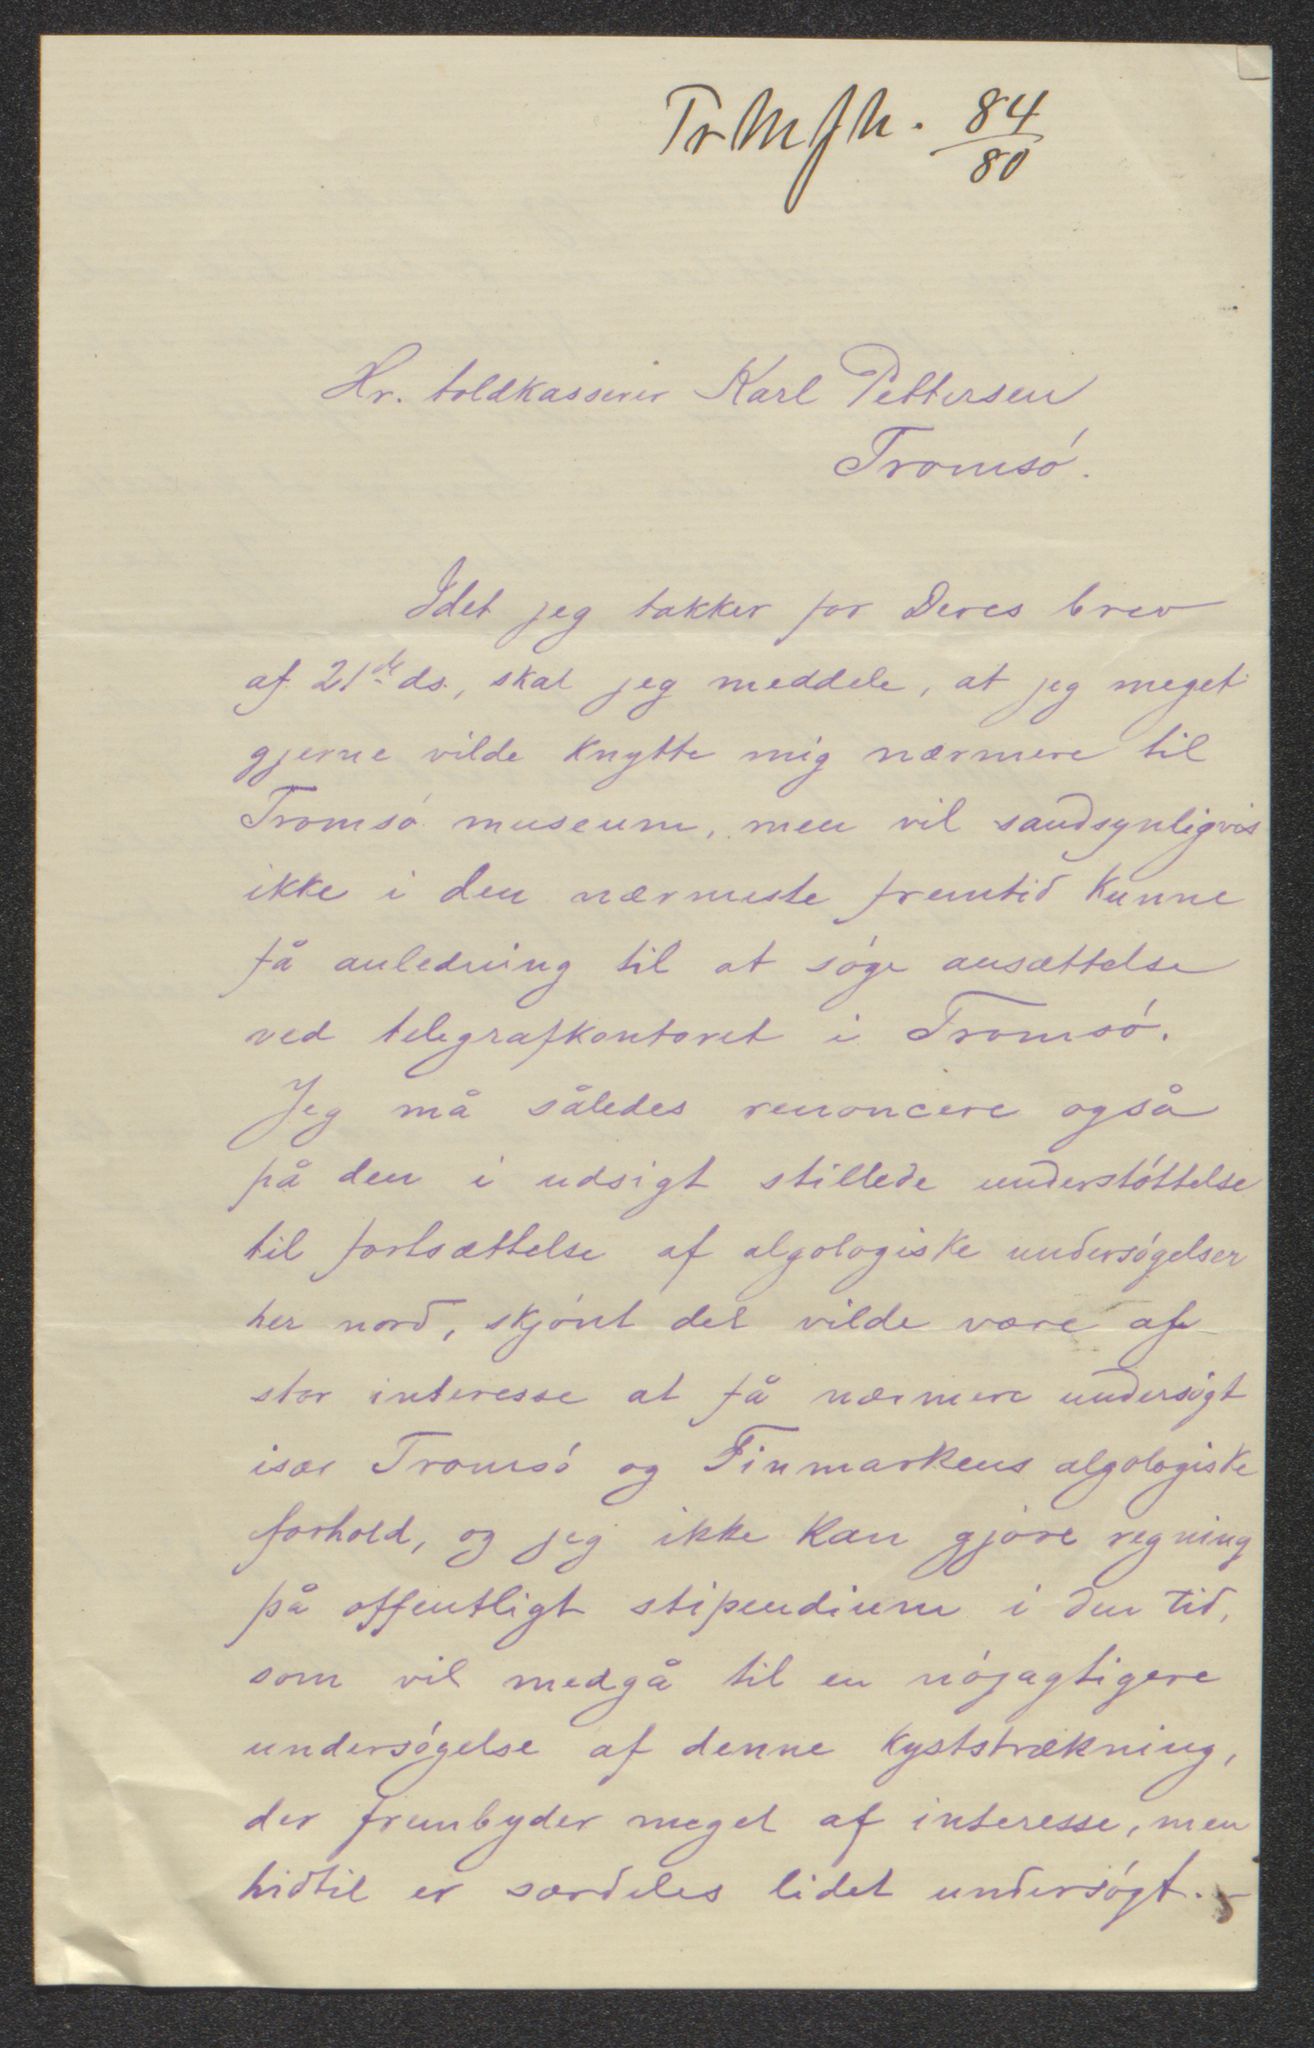 Tr M f h. 84/80
Hr. toldkasserer Karl Pettersen
Tromsó.
Idet jeg takker for Deres brev
af 21de ds., skal jeg meddele, at jeg meget
gjerne vilde knytte mig nærmere til
Tromsó museum, men vil sandsynligvis
ikke i den nærmeste fremtid kunne
få anledning til at sóge ansættelse
ved telegrafkontoret i Tromsó.
Jeg må således renoncere også
på den i udsigt stillede understóttelse
til fortsættelse af algologiske undersógelser
her nord, skjónt det vilde være af
stor interesse at få nærmere undersógt
især Tromsó og Finmarkens algologiske
forhold, og jeg ikke kan gjóre regning
på offentligt stipendium i den tid,
som vil medgå til en nójagtigere
undersógelse af denne kyststrækning,
der frembyder meget af interesse, men
hidtil er særdeles lidet undersógt. –